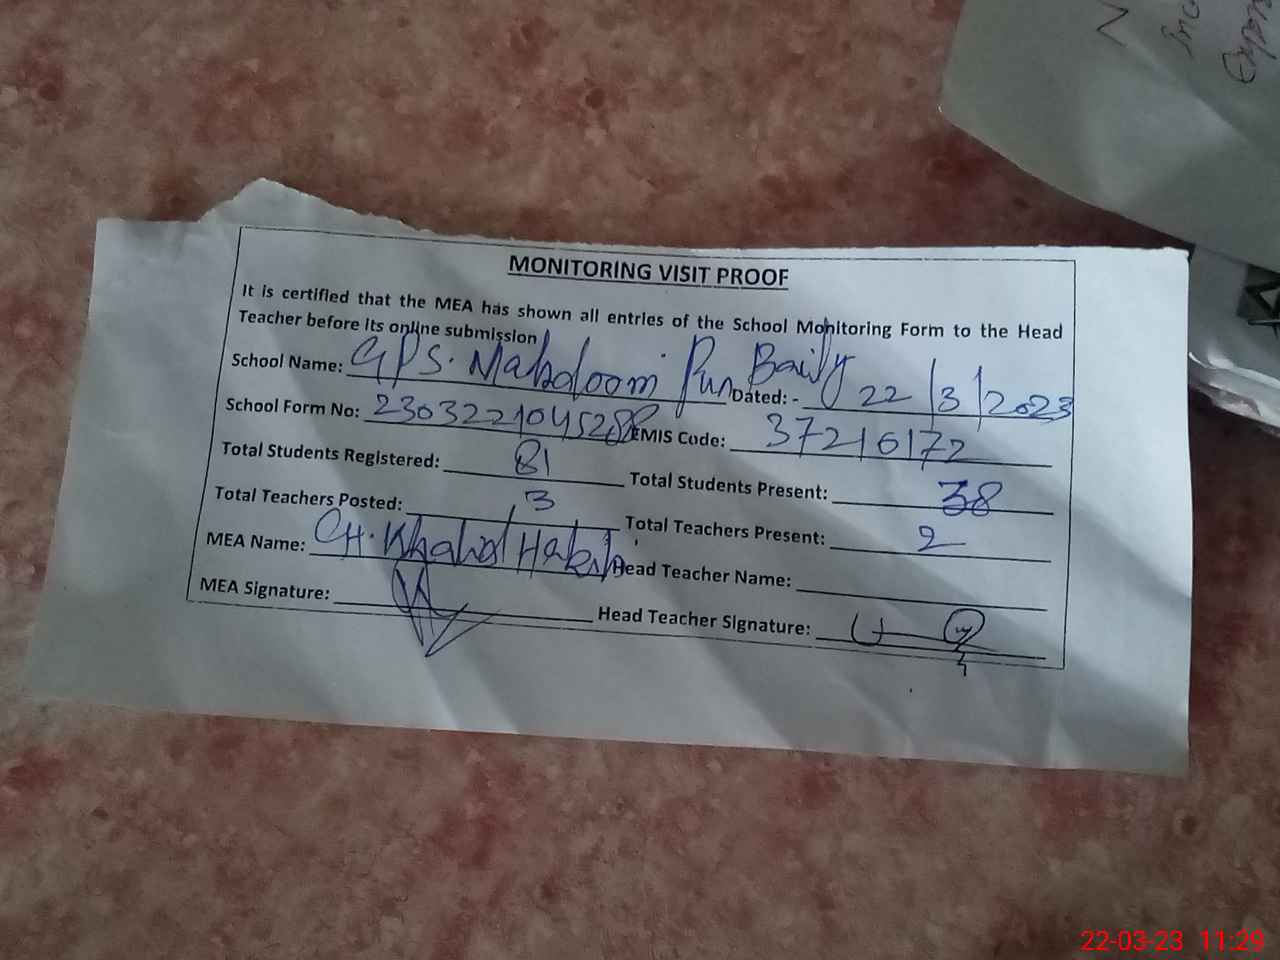 N
inc
MONITORING VISIT PROOF
It is certified that the MEA has shown all entries of the School Monitoring Form to the Head
Teacher before its online submission
School Name: GPS. Makdoom Pur Dated: - 22/3/2023
School Form No: EMIS Code: 37216172
Total Students Registered: 81 Total Students Present: 38
Total Teachers Posted: 3 Total Teachers Present: 2
MEA Name: CH. Khalid Head Teacher Name:
MEA Signature: Head Teacher Signature:
22-03-23 11:29